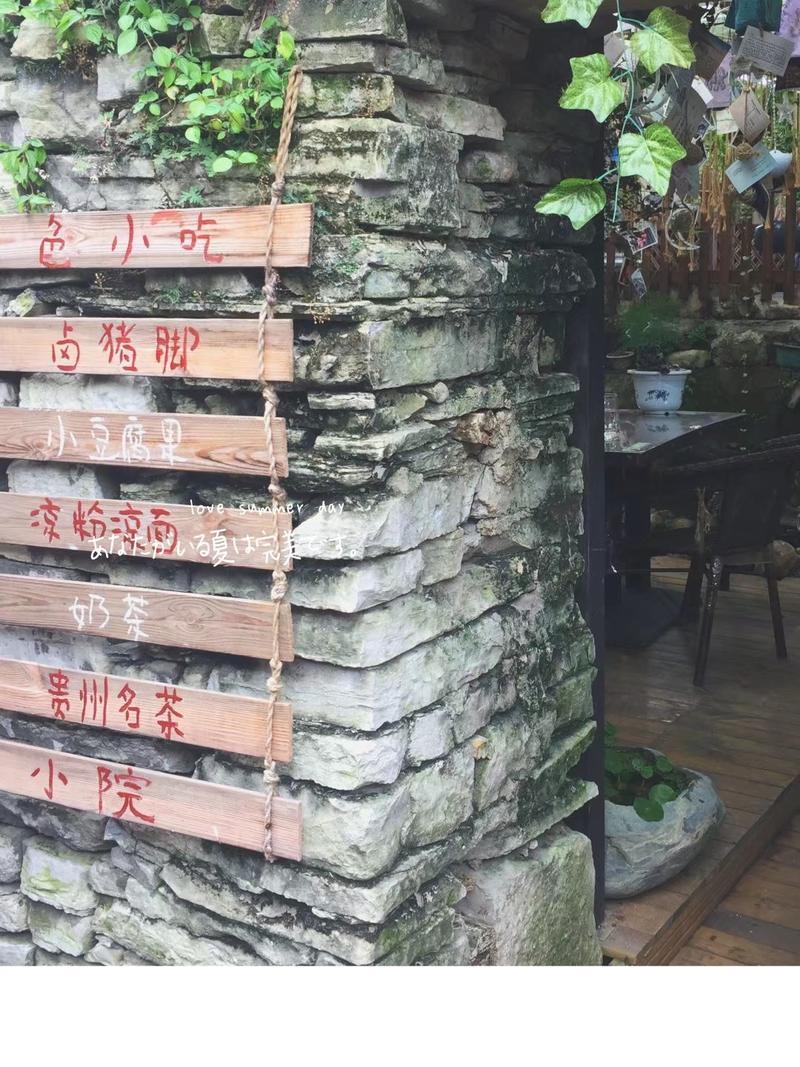 色小吃
卤猪脚
小豆腐果
凉粉凉面
love summer day
あなたがいる夏は完美です。
奶茶
贵州名茶
小院